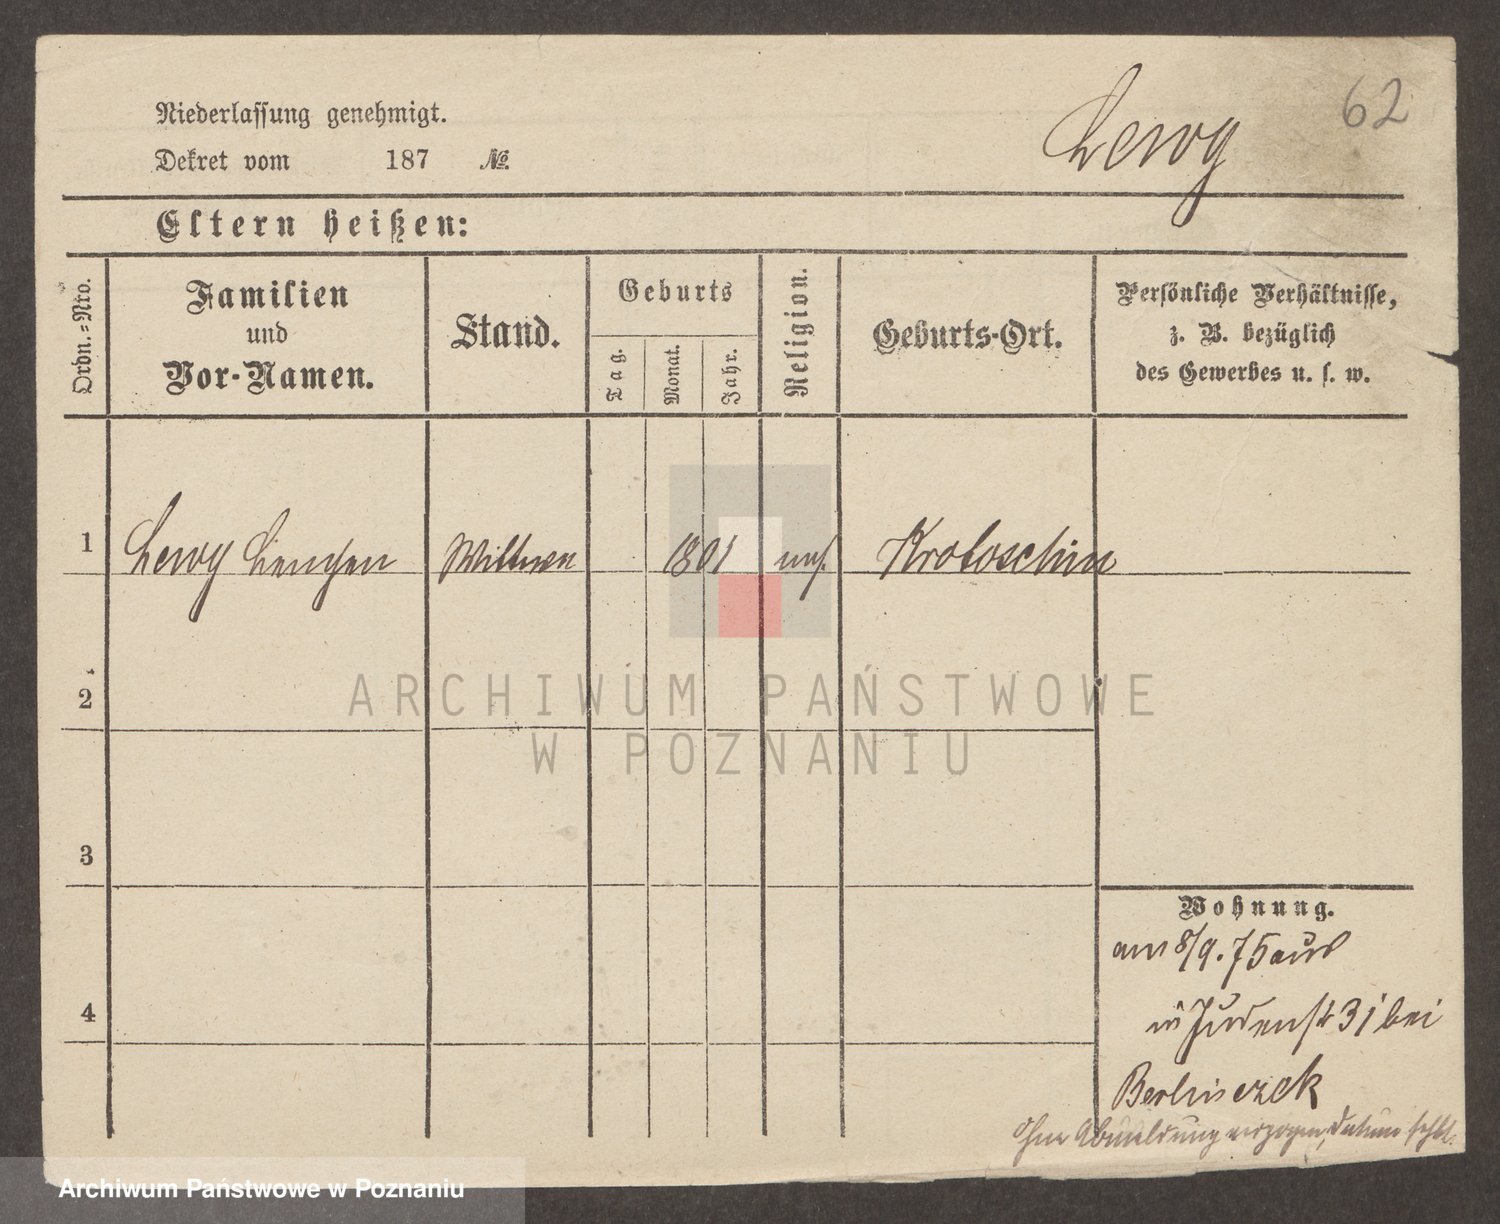 62
Niederlassung genehmigt.
Lewy
Dekret vom 187 №
Eltern heißen:
Ordn.=Nro.
Familien und Vor-Namen.
Stand.
Geburts
Tag.
Monat.
Jahr.
Religion.
Geburts-Ort.
Persönliche Verhältnisse,
z. B. bezüglich
des Gewerbes u. s. w.
1 Lewy Lenchen Wittwe 1801 mos. Krotoschin
2
ARCHIWUM PAŃSTWOWE
W POZNANIU
3
Wohnung.
am 8/9. 75 aus
4
in Judenstr 31 bei
Ohne Abmeldung verzogen, Datum fehlt.
Archiwum Państwowe w Poznaniu